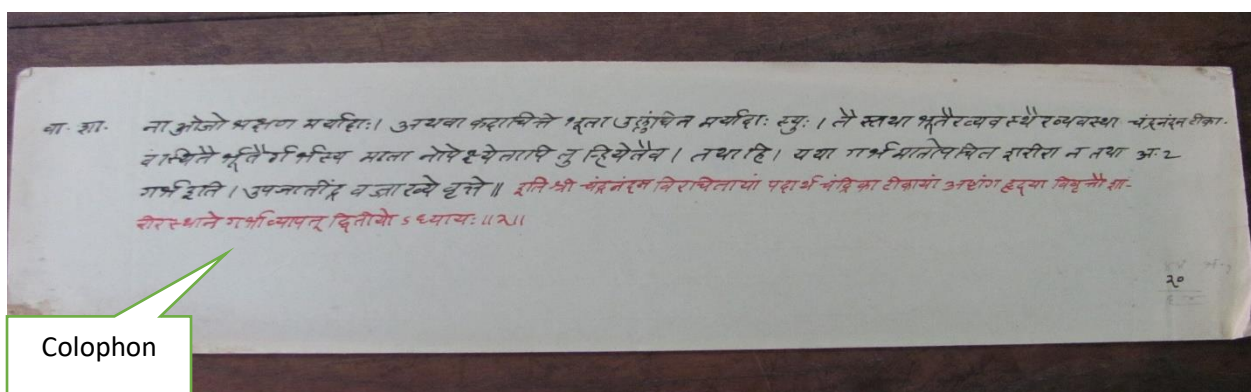 वा. शा. ना ओजो भक्षण मर्यादाः। अथवा कदाचित्ते भूता उल्लंघित मर्यादाः स्युः। तै स्तथा भूतैरव्यवस्थैरव्यवस्था चंद्रनंदन टीका.
वास्थितै र्भूतैर्गर्भस्य माता नोपेक्ष्येतापि तु ह्रियेतैव। तथाहि। यथा गर्भ मातोपचित शरीरा न तथा अ. 2
गर्भ इति। उपजातींद्र वज्राख्ये वृत्ते॥ इति श्री चंद्रनंदन विरचितायां पदार्थ चंद्रिका टीकायां अष्टांग हृदया विवृत्तौ शा-
रीरस्थाने गर्भाव्यापत् द्वितीयो ऽ ध्यायः॥२॥
२०
Colophon